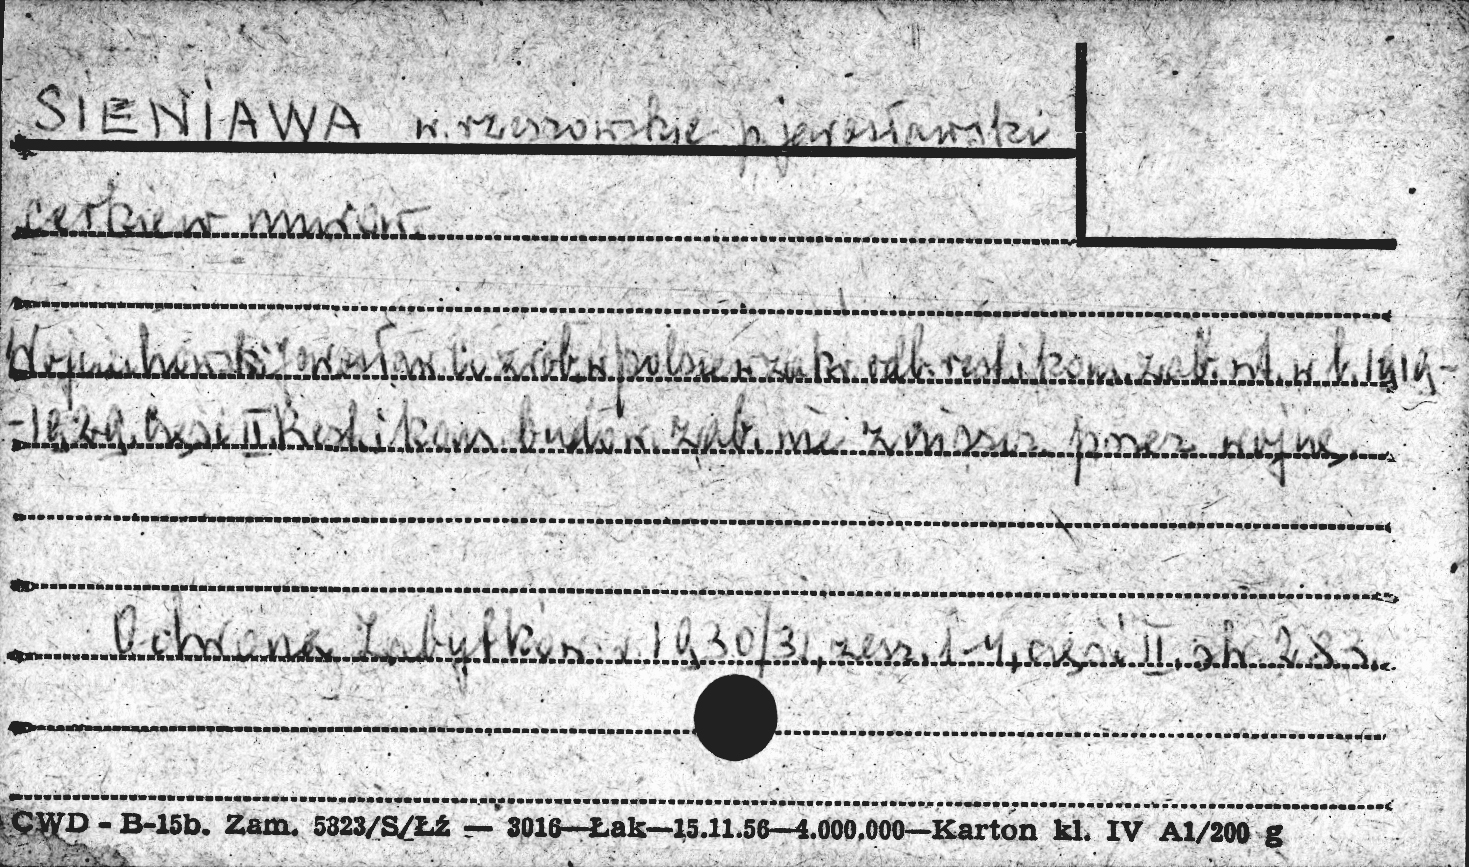 SIENIAWA w. rzeszowskie p. jarosławski
cerkiew murow.
Wojciechowski Jarosław w Polsce w zakr. odb. rest. i kons. zab. w l. 1919-
-1929. Część II Rest. i kons. budow. zab. nie znisz. przez wojnę.
Ochrona Zabytków r. 1930/31, zesz. 1-4, część II, str. 283.
CWD - B-15b. Zam. 5823/S/Łź — 3016—Łak—15.11.56—4.000.000—Karton kl. IV A1/200 g